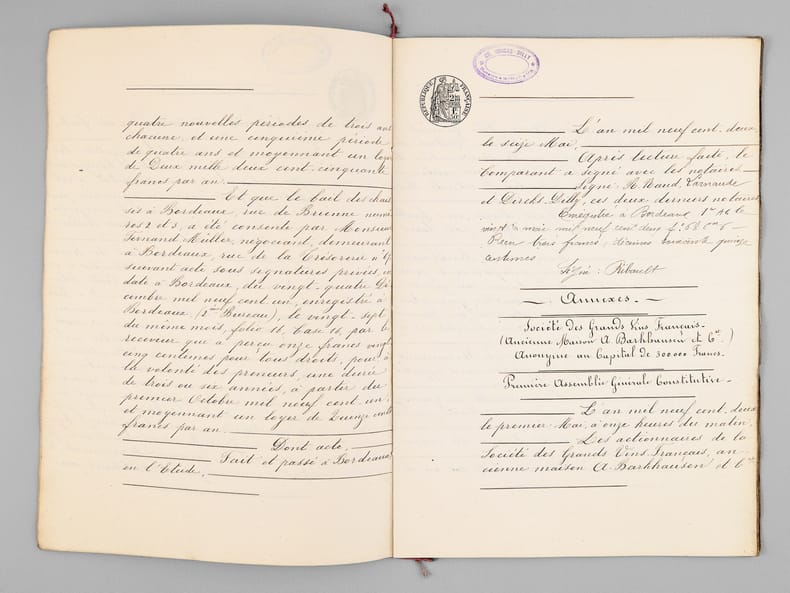 quatre nouvelles périodes de trois ans
chacune, et une cinquième période
de quatre ans et moyennant un loyer
de Deux mille deux cent cinquante
francs par an.
Et que le bail des chais
sis à Bordeaux, rue de Brienne numé
ros 2 et 3, a été consenti par Monsieur
Fernand Müller, négociant, demeurant
à Bordeaux, rue de la Trésorerie
suivant acte sous signatures privées, en
date à Bordeaux, du vingt-quatre Dé
cembre mil neuf cent un, enregistré à
Bordeaux (2me Bureau), le vingt-sept
du même mois, folio 11, Case 16, par le
receveur qui a perçu onze francs vingt
cinq centimes pour tous droit, pour à
la volonté des preneurs, une durée
de trois ou six années, à partir du
premier Octobre mil neuf cent un,
et moyennant un loyer de Quinze cents
francs par an.
Dont acte,
Fait et passé à Bordeaux
en l'Etude,
RÉPUBLIQUE FRANÇAISE
L'an mil neuf cent deux
le seize Mai,
Après lecture faite, le
Comparant a signé avec les notaires
Signé: Larnaude
et Dircks-Dilly, ces deux derniers notaires
Enregistré à Bordeaux le
vingt mai mil neuf cent deux
Reçu trois francs, décimes soixante quinze
centimes
Signé: Ribault
Annexes.
Société des Grands Vins Français.
(Ancienne Maison A. Barkhausen et Cie.)
Anonyme au Capital de 300.000 Francs.
Première Assemblée Générale Constitutive.
L'an mil neuf cent deux
le premier Mai, à onze heures du matin.
Les actionnaires de la
Société des Grands Vins Français, an
cienne maison A. Barkhausen et Cie